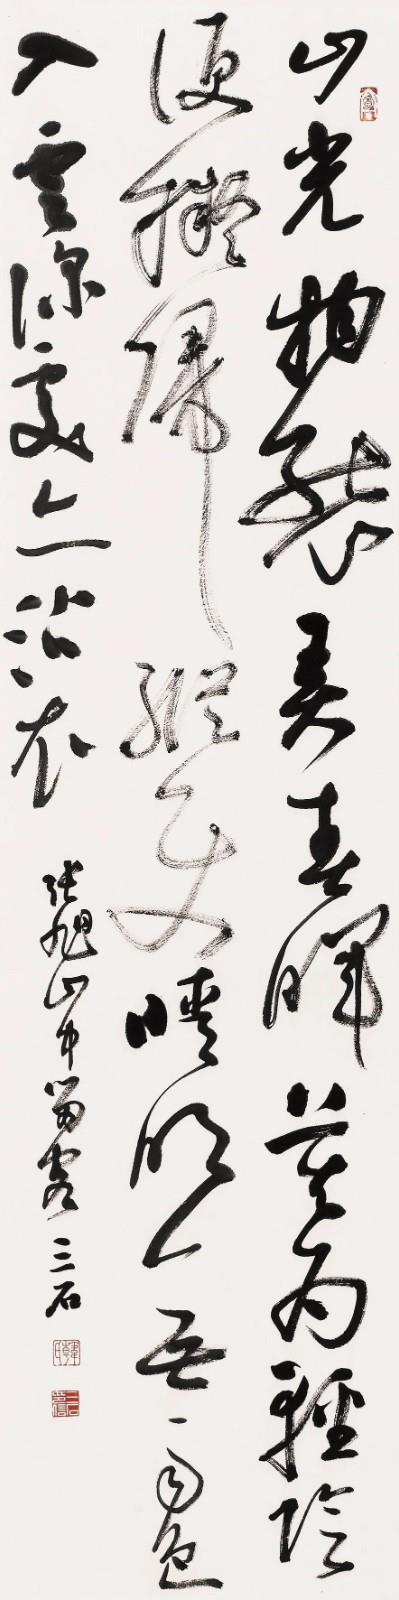 山光物態弄春暉莫為輕陰
便擬歸縱使晴明無雨色
入雲深處亦沾衣
張旭山中留客 三石